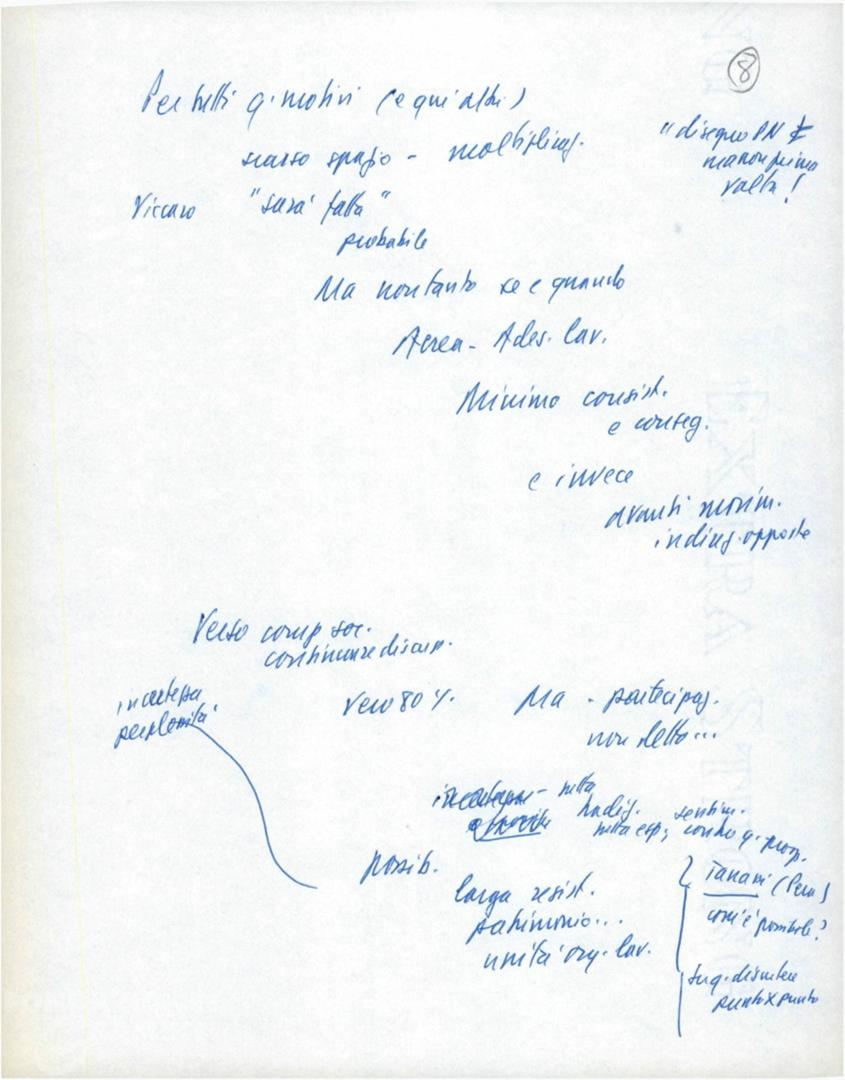 8
Per tutti q. motivi (e qui altri)
scarso spazio - moltiplicaz.
"disegno PN
ma non prima
volta!
Viccaro "sarà fatta"
probabile
Ma non tanto se e quando
Acrea - Ades. lav.
Minimo consist.
e conseg.
e invece
avanti movim.
in direz. opposte
Verso comp soc.
continuare discuss.
incertezza
perplessità
vero 80%. Ma - partecipaz.
non detto...
nella tradiz. sentim.
nella esp, contro q. prop.
Possib.
larga resist.
patrimonio...
unità org. lav.
Tanari (Pera)
com'è possibile?
su q. discutere
punto x punto